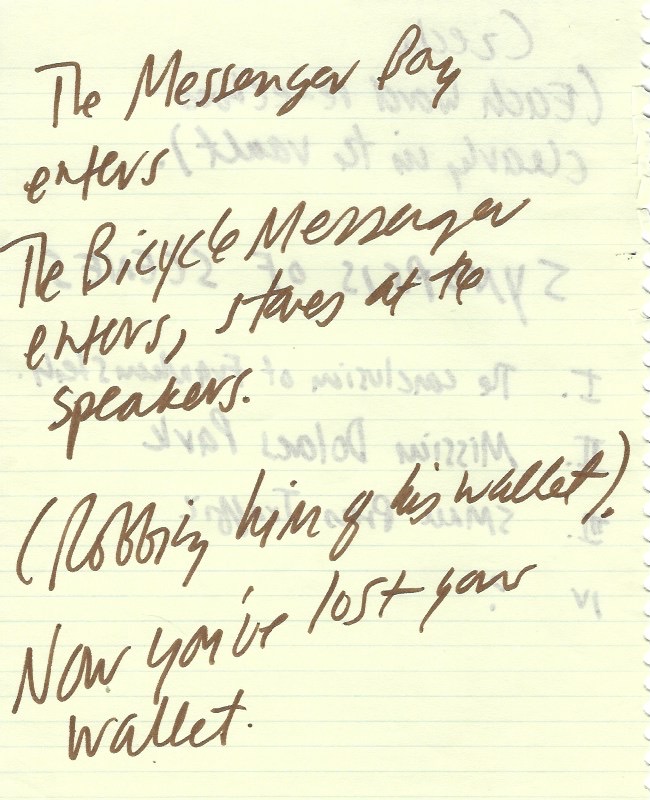 The Messenger Boy
enters
The Bicycle Messenger
enters, stares at the
speakers.
(Robbing him of his wallet).
Now you've lost your
wallet.